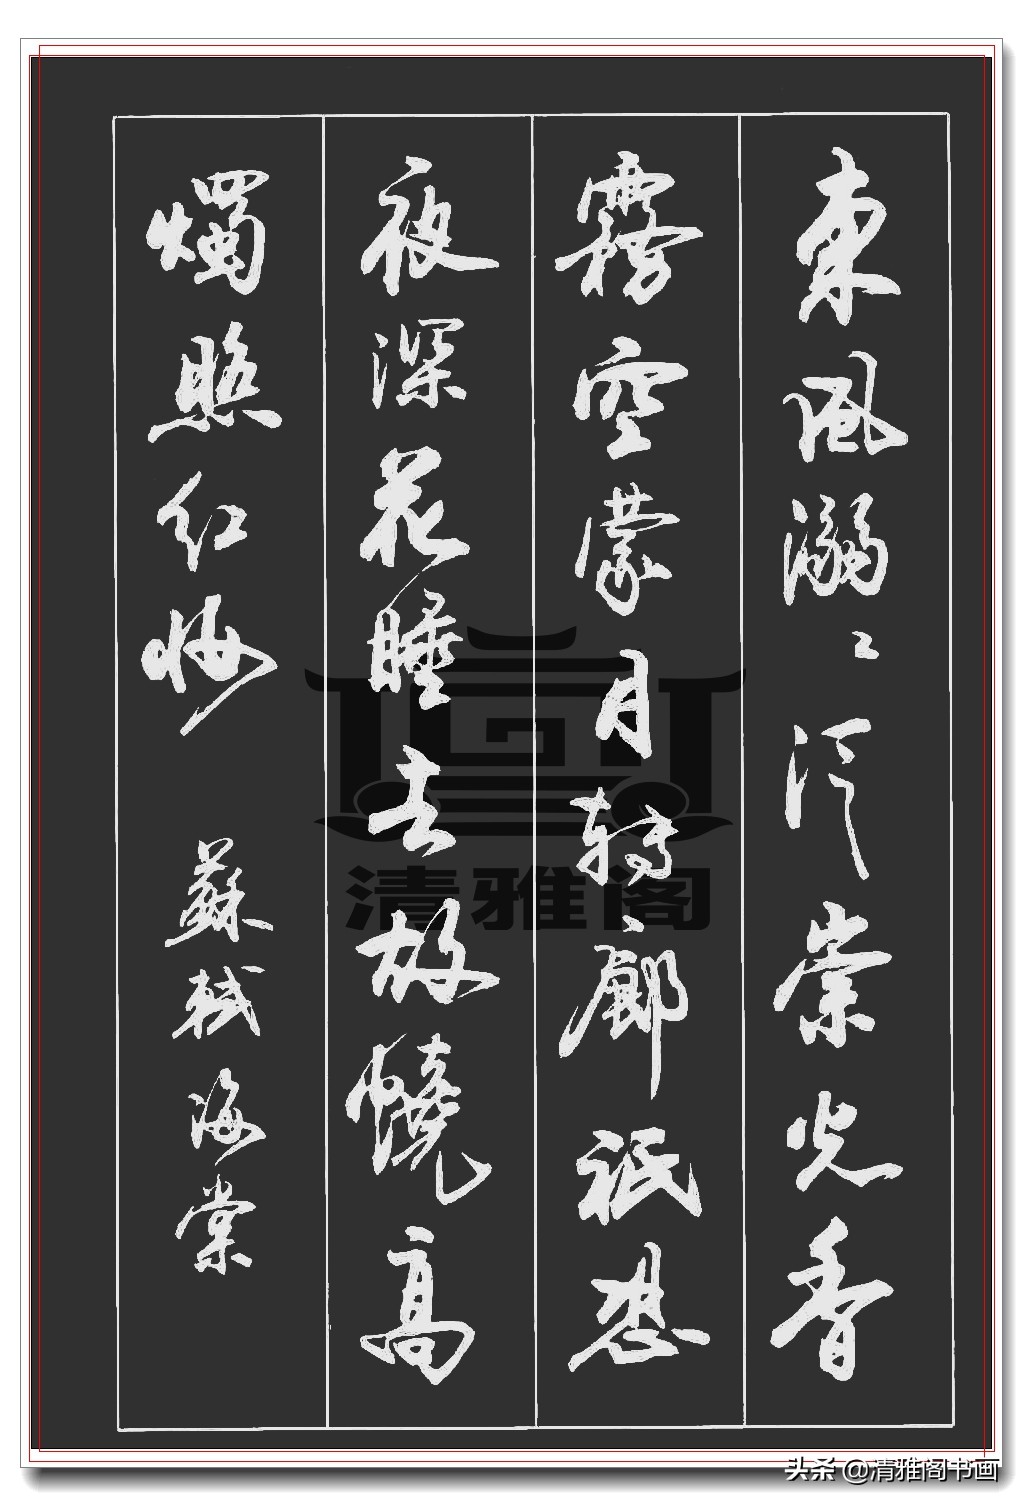 東風溺〻泛崇光香
霧空蒙月轉廊祇恐
夜深花睡去故燒高
燭照紅妝 蘇軾海棠
清雅阁
头条 @清雅阁书画